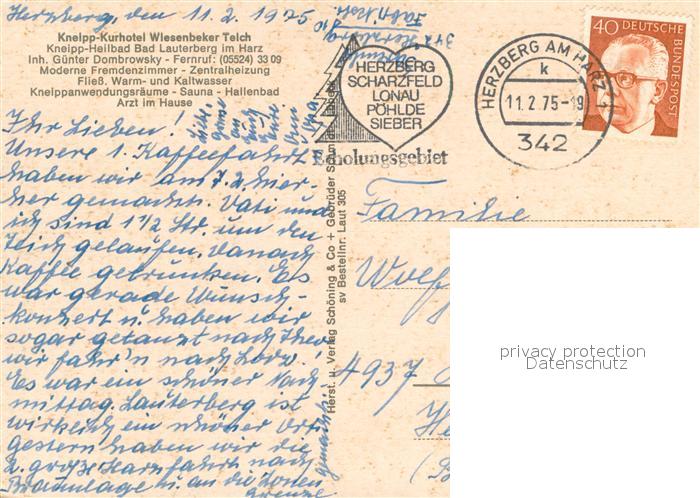 Herzberg, den 11.2.1975
Kneipp-Kurhotel Wiesenbeker Teich
Kneipp-Heilbad Bad Lauterberg im Harz
Inh. Günter Dombrowsky - Fernruf: (05524) 33 09
Moderne Fremdenzimmer - Zentralheizung
Fließ. Warm- und Kaltwasser
Kneippanwendungsräume - Sauna - Hallenbad
Arzt im Hause
Ihr Lieben!
Unsere 1. Kaffeefahrt
haben wir am 7.2. hier-
her gemacht. Vati und
ich sind 1 1/2 Std. um den
Teich gelaufen. Danach
Kaffee getrunken. Es
war gerade Wunsch-
konzert u. haben wir
sogar getanzt nach
wir fahr'n nach
Es war ein schöner Nach-
mittag. Lauterberg ist
wirklich ein schöner Ort.
gestern haben wir die
2. große Harzfahrt nach
Braunlage u. an die Zonen
grenze
gemacht.
Liebe
Grüße
an
Euch
342 Herzberg
Fabrikstr.
HERZBERG
SCHARZFELD
LONAU
PÖHLDE
SIEBER
Erholungsgebiet
HERZBERG AM HARZ 1
k
11.2.75-19
342
40 DEUTSCHE
BUNDESPOST
Herst. u. Verlag Schöning & Co + Gebrüder Schmidt, Lübeck
sv Bestellnr. Laut 305
Familie
Wolf
4937
privacy protection
Datenschutz